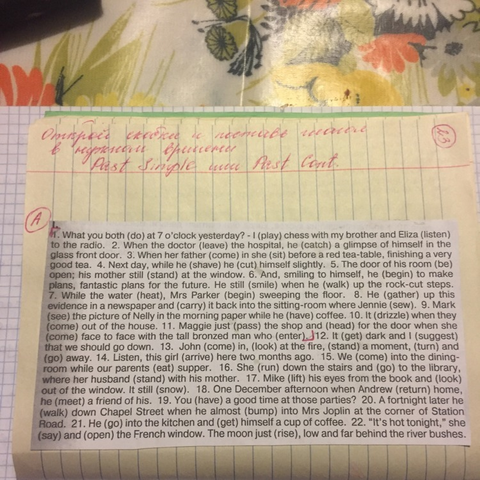 Открой скобки и поставь глагол
в нужном времени
Past Simple или Past Cont.
A
1. What you both (do) at 7 o'clock yesterday? - I (play) chess with my brother and Eliza (listen)
to the radio. 2. When the doctor (leave) the hospital, he (catch) a glimpse of himself in the
glass front door. 3. When her father (come) in she (sit) before a red tea-table, finishing a very
good tea. 4. Next day, while he (shave) he (cut) himself slightly. 5. The door of his room (be)
open; his mother still (stand) at the window. 6. And, smiling to himself, he (begin) to make
plans, fantastic plans for the future. He still (smile) when he (walk) up the rock-cut steps.
7. While the water (heat), Mrs Parker (begin) sweeping the floor. 8. He (gather) up this
evidence in a newspaper and (carry) it back into the sitting-room where Jennie (sew). 9. Mark
(see) the picture of Nelly in the morning paper while he (have) coffee. 10. It (drizzle) when they
(come) out of the house. 11. Maggie just (pass) the shop and (head) for the door when she
(come) face to face with the tall bronzed man who (enter). 12. It (get) dark and I (suggest)
that we should go down. 13. John (come) in, (look) at the fire, (stand) a moment, (turn) and
(go) away. 14. Listen, this girl (arrive) here two months ago. 15. We (come) into the dining-
room while our parents (eat) supper. 16. She (run) down the stairs and (go) to the library,
where her husband (stand) with his mother. 17. Mike (lift) his eyes from the book and (look)
out of the window. It still (snow). 18. One December afternoon when Andrew (return) home,
he (meet) a friend of his. 19. You (have) a good time at those parties? 20. A fortnight later he
(walk) down Chapel Street when he almost (bump) into Mrs Joplin at the corner of Station
Road. 21. He (go) into the kitchen and (get) himself a cup of coffee. 22. "It's hot tonight," she
(say) and (open) the French window. The moon just (rise), low and far behind the river bushes.